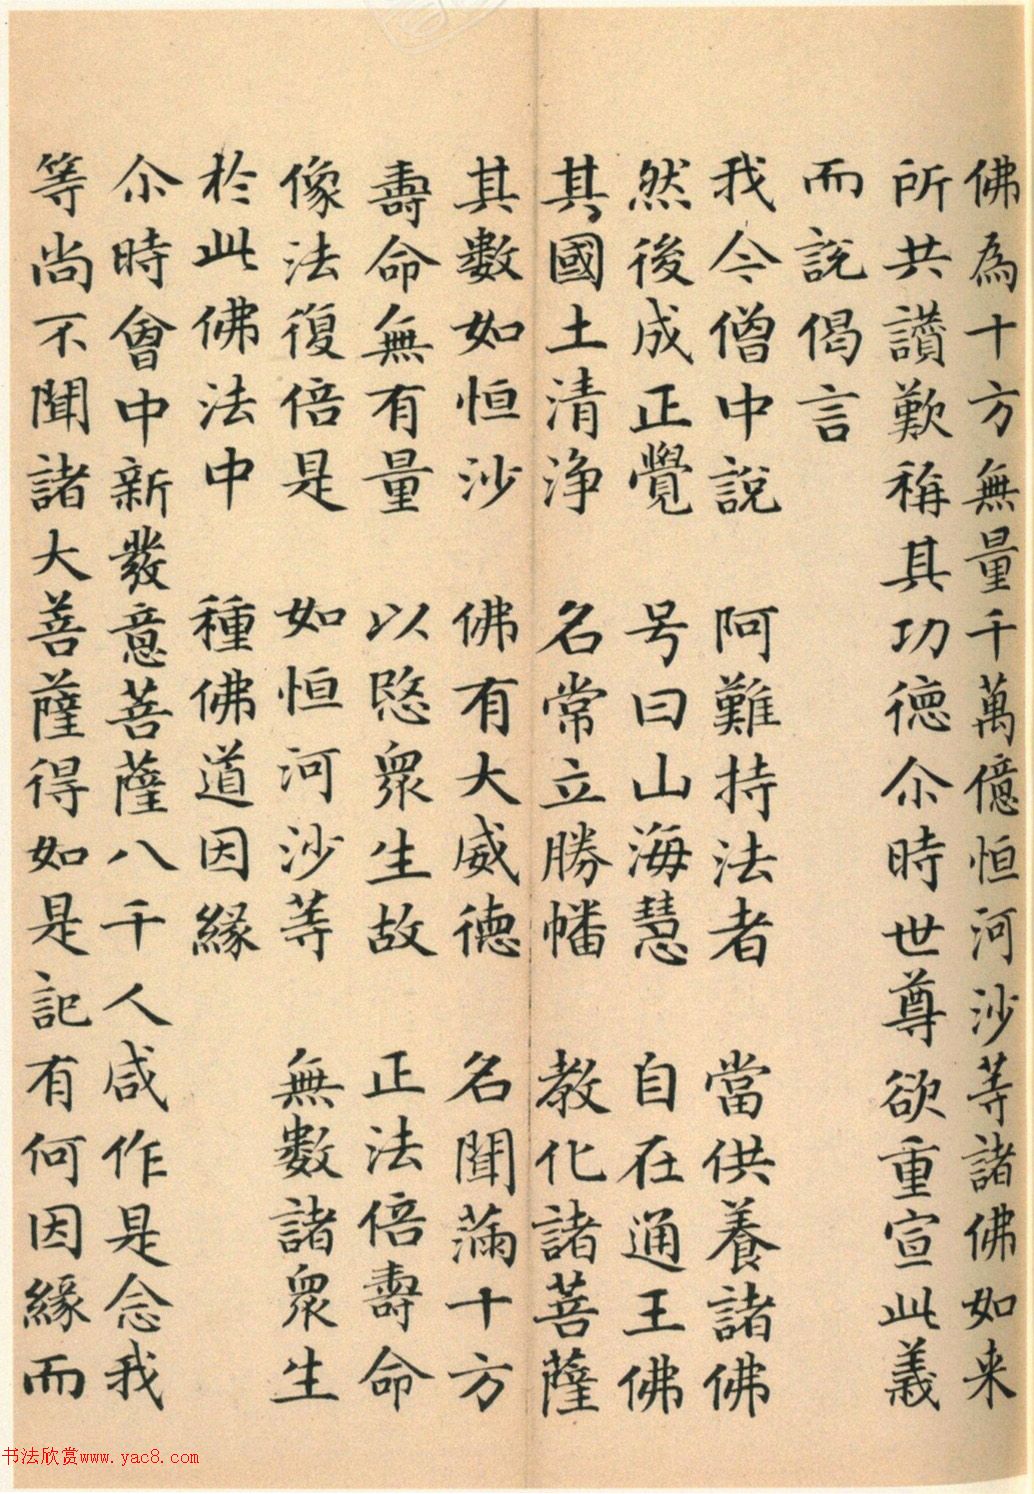 佛為十方無量千萬億恒河沙等諸佛如来
所共讃歎稱其功德尒時世尊欲重宣此義
而説偈言
我今僧中説 阿難持法者 當供養諸佛
然後成正覺 号曰山海慧 自在通王佛
其國土清浄 名常立勝幡 教化諸菩薩
其數如恒沙 佛有大威德 名聞滿十方
壽命無有量 以愍衆生故 正法倍壽命
像法復倍是 如恒河沙等 無數諸衆生
於此佛法中 種佛道因緣
尒時會中新發意菩薩八千人咸作是念我
等尚不聞諸大菩薩得如是記有何因緣而
书法欣赏www.yac8.com